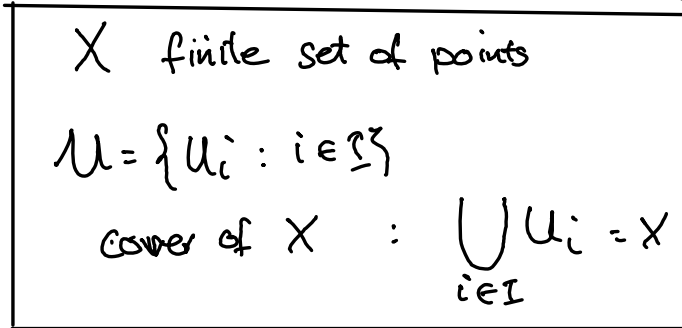 X finite set of points
𝒰 = {Uᵢ : i ∈ I}
cover of X : ⋃ Uᵢ = X
i ∈ I